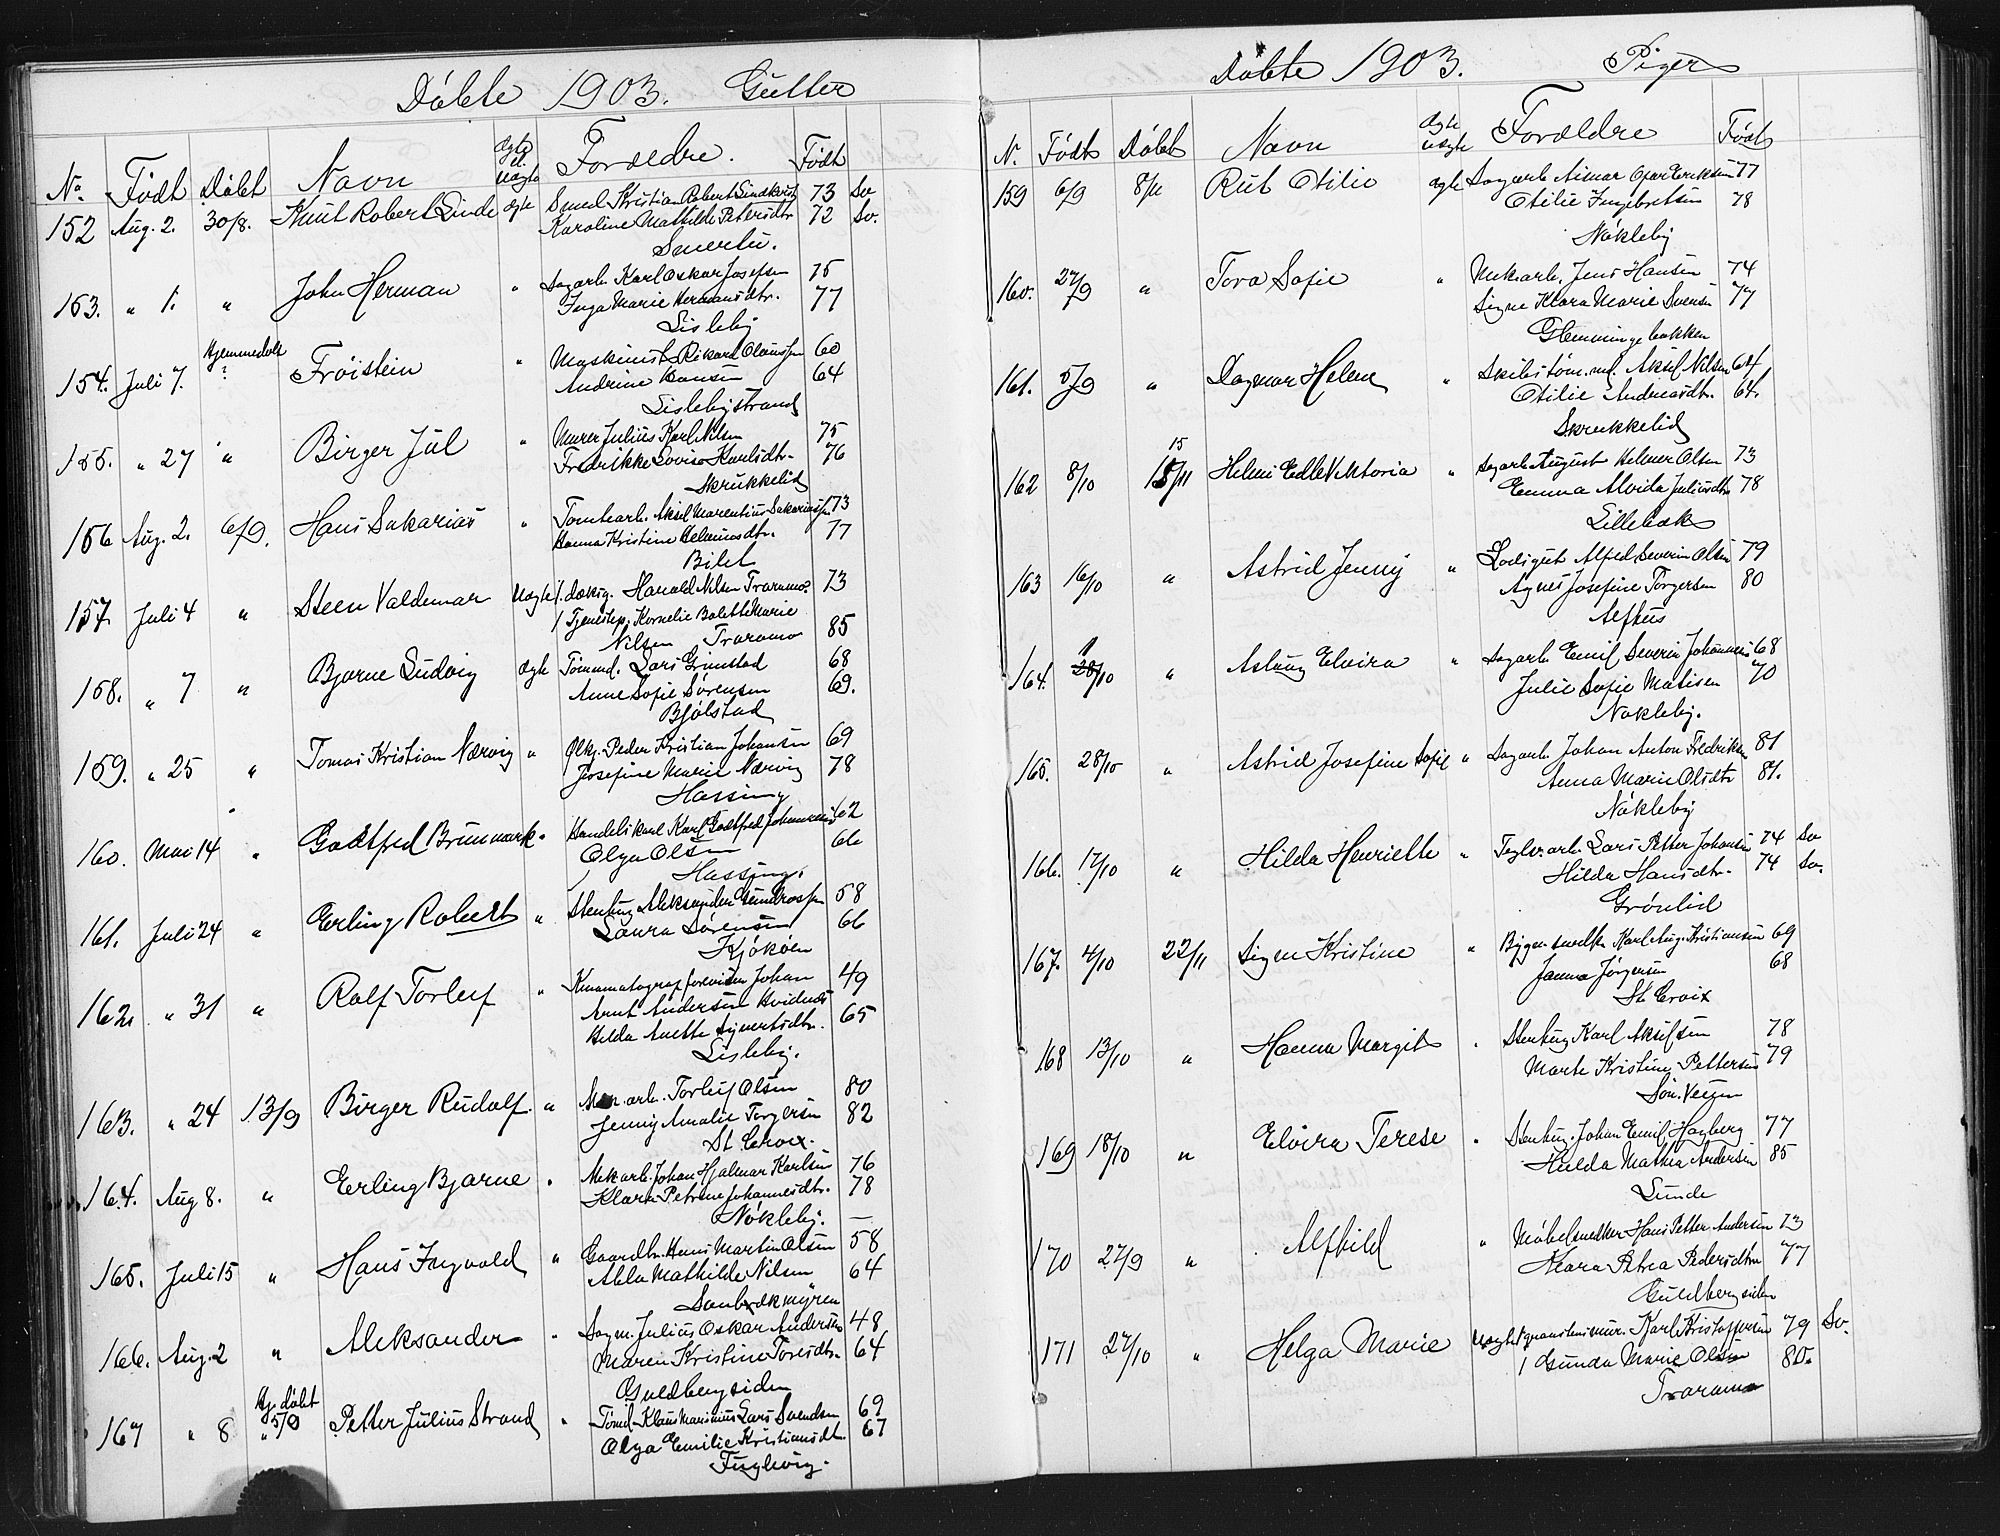 Döbte 1903. Gutter
No. Födt Döbt Navn ægte el. uægte Forældre. Födt
152 Aug. 2. 30/8. Knut Robert Linde ægte Smed Kristian Robert Lindkvist 73 Sv
Karoline Mathilde Petersdtr. 72 Sv.
Smertu.
153. " 1. " John Herman " Dagarb. Karl Oskar Josefsen 75
Inga Marie Hermansdtr. 77
Lisleby
154. Juli 7. Hjemmedöbt ? Fröistein " Maskinist Rikard Olaussen 60
Andrine Hansen 64
Lislebystrand
155. " 27 " Birger Jul " Murer Julius Karl Nilsen 75
Fredrikke Lovise Karlsdtr. 76
Skrukkelid
156 Aug. 2. 6/9. Hans Sakarias " Tomtearb. Aksel Marentius Sakariassen 73
Hanna Kristine Helmersdtr. 77
Bilet
157. Juli 4 " Steen Valdemar Uægte Harald Nilsen Traramo. 73
/ Tjenestep. Kornelie Bolette Marie
Nilsen Traramo 85
158. " 7 " Bjarne Ludvig ægte Tömmd. Lars Grimstad 68
Anne Sofie Sørensen 69.
Bjölstad
159. " 25 " Tomas Kristian Nærvig " Peder Kristian Johansen 69
Josefine Marie Nærvig 78
Hassing
160. Mai 14 " Godtfred Brunmark " Handelskarl Karl Godtfred Johannesen 62
Olga Olsen 66
Hassing.
161. Juli 24 " Erling Robert " Stenhug Aleksander Gundrossen 58
Laura Sørensen 66
Kjököen
162. " 31 " Ralf Torleif " Kinamatografforeviser Johan 49
Arnt Andersen Hvidnes
Hilda Anette Syvertsdtr. 65
Lisleby.
163. " 24 13/9 Birger Rudolf. " arb. Torleif Olsen 80
Jenny Amalie Torgersen 82
St Croix.
164. Aug 8. " Erling Bjarne " Mekarb. Johan Hjalmar Karlsen 76
Klara Petrine Johannesdtr. 78
Nökleby.
165. Juli 15 " Hans Ingvald " Gaardbr. Hans Martin Olsen 58
Abla Mathilde Nilsen 64
Sandbækmyren
166. Aug. 2 " Aleksander " Dagm. Julius Oskar Andersen 48
Maren Kristine Toresdtr. 64
Guldbergsiden
167 " 8 Hj. döbt " 5/9 Petter Julius Strand " Tömd. Klaus Marinius Lars Svendsen 69
Olga Emilie Kristiansdt. 67
Fuglevig.
Döbte 1903. Piger
N. Födt Döbt Navn ægte uægte Forældre Födt
159 6/9 8/11 Rut Otilie ægte Dagarb. Aimar Oskar Eriksen 77
Otilie Ingebretsen 78
Nökleby
160. 27/9 " Tora Sofie " Mekarb. Jens Hansen 74
Signe Klara Marie Svensen 77
Glemmingebakken
161. 5/9 " Dagmar Helene " Skibstöm.md. Aksel Nilsen 64
Otilie Andreasdtr. 64.
Skrukkelid
162 8/10 15/11 15 Heleni Edle Viktoria " Dagarb August Helmer Olsen 73
Emma Alvida Juliusdtr 78
Lillebæk
163 16/10 " Astrid Jenny " Lodsgut Alfred Severin Olsen 79
Agnes Josefine Torgersen 80
Alfhus
164. 1 20/10 " Aslaug Elvira " Dagarb Emil Severin Johannesen 68
Julie Sofie Matisen 70
Nökleby.
165. 28/10 " Astrid Josefine Sofie " Dagarb. Johan Anton Fredriksen 81
Anna Marie Olsdtr 81.
Nökleby
166. 17/10 " Hilda Henriette " Teglv.arb. Lars Petter Johansen 74 Sv
Hilda Hansdtr. 74 Sv.
Grönlid
167. 4/10 22/11 Signe Kristine " Bygn.snedk. Karl Aug. Kristiansen 69
Janna Jørgensen 68
St Croix
168 13/10 " Hanna Margit " Stenhug Karl Akselsen 78
Marte Kristine Pettersen 79
Sön. Veum
169 18/10 " Elvira Terese " Stenhug. Johan Emil Hagberg 77
Hulda Mathea Andersen 85
Lunde
170 27/9 " Alfhild " Möbelsnedker Hans Petter Andersen 73
Klara Petrea Pedersdtr 77
Guldbergsiden
171 27/10 " Helga Marie Uægte Karl Kristoffersen 79 Sv.
/ Gunda Marie Olsen 80.
Traramo